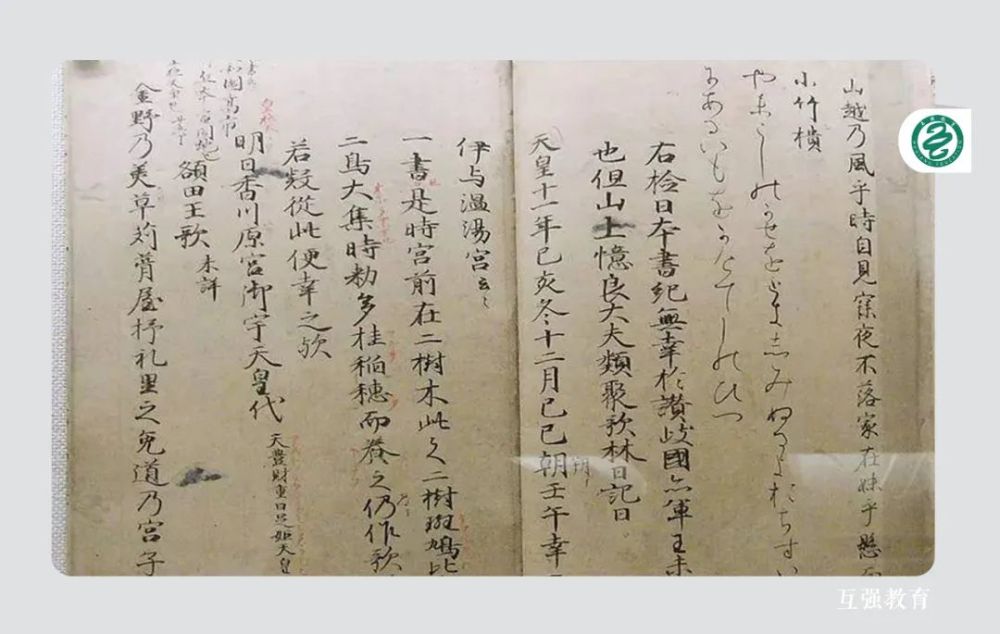 山越乃風乎時自見寐夜不落家在妹乎懸
小竹櫃
やまこしのかせをときしみぬるよおちすい
にあるいもをかけてしのひつ
右检日本書紀無幸於讃岐國亦軍王未
也但山上憶良大夫類聚歌林曰記曰
天皇十一年己亥冬十二月己巳朔壬午幸
伊与温湯宮云々
一書是時宮前在二樹木此之二樹斑鳩比
二鳥大集時勅多挂稲穂而養之仍作歌
若疑從此便幸之欤
明日香川原宮御宇天皇代 天豊財重日足姫天皇
額田王歌 未詳
金野乃美草苅葺屋杼礼里之兎道乃宮子
互强教育